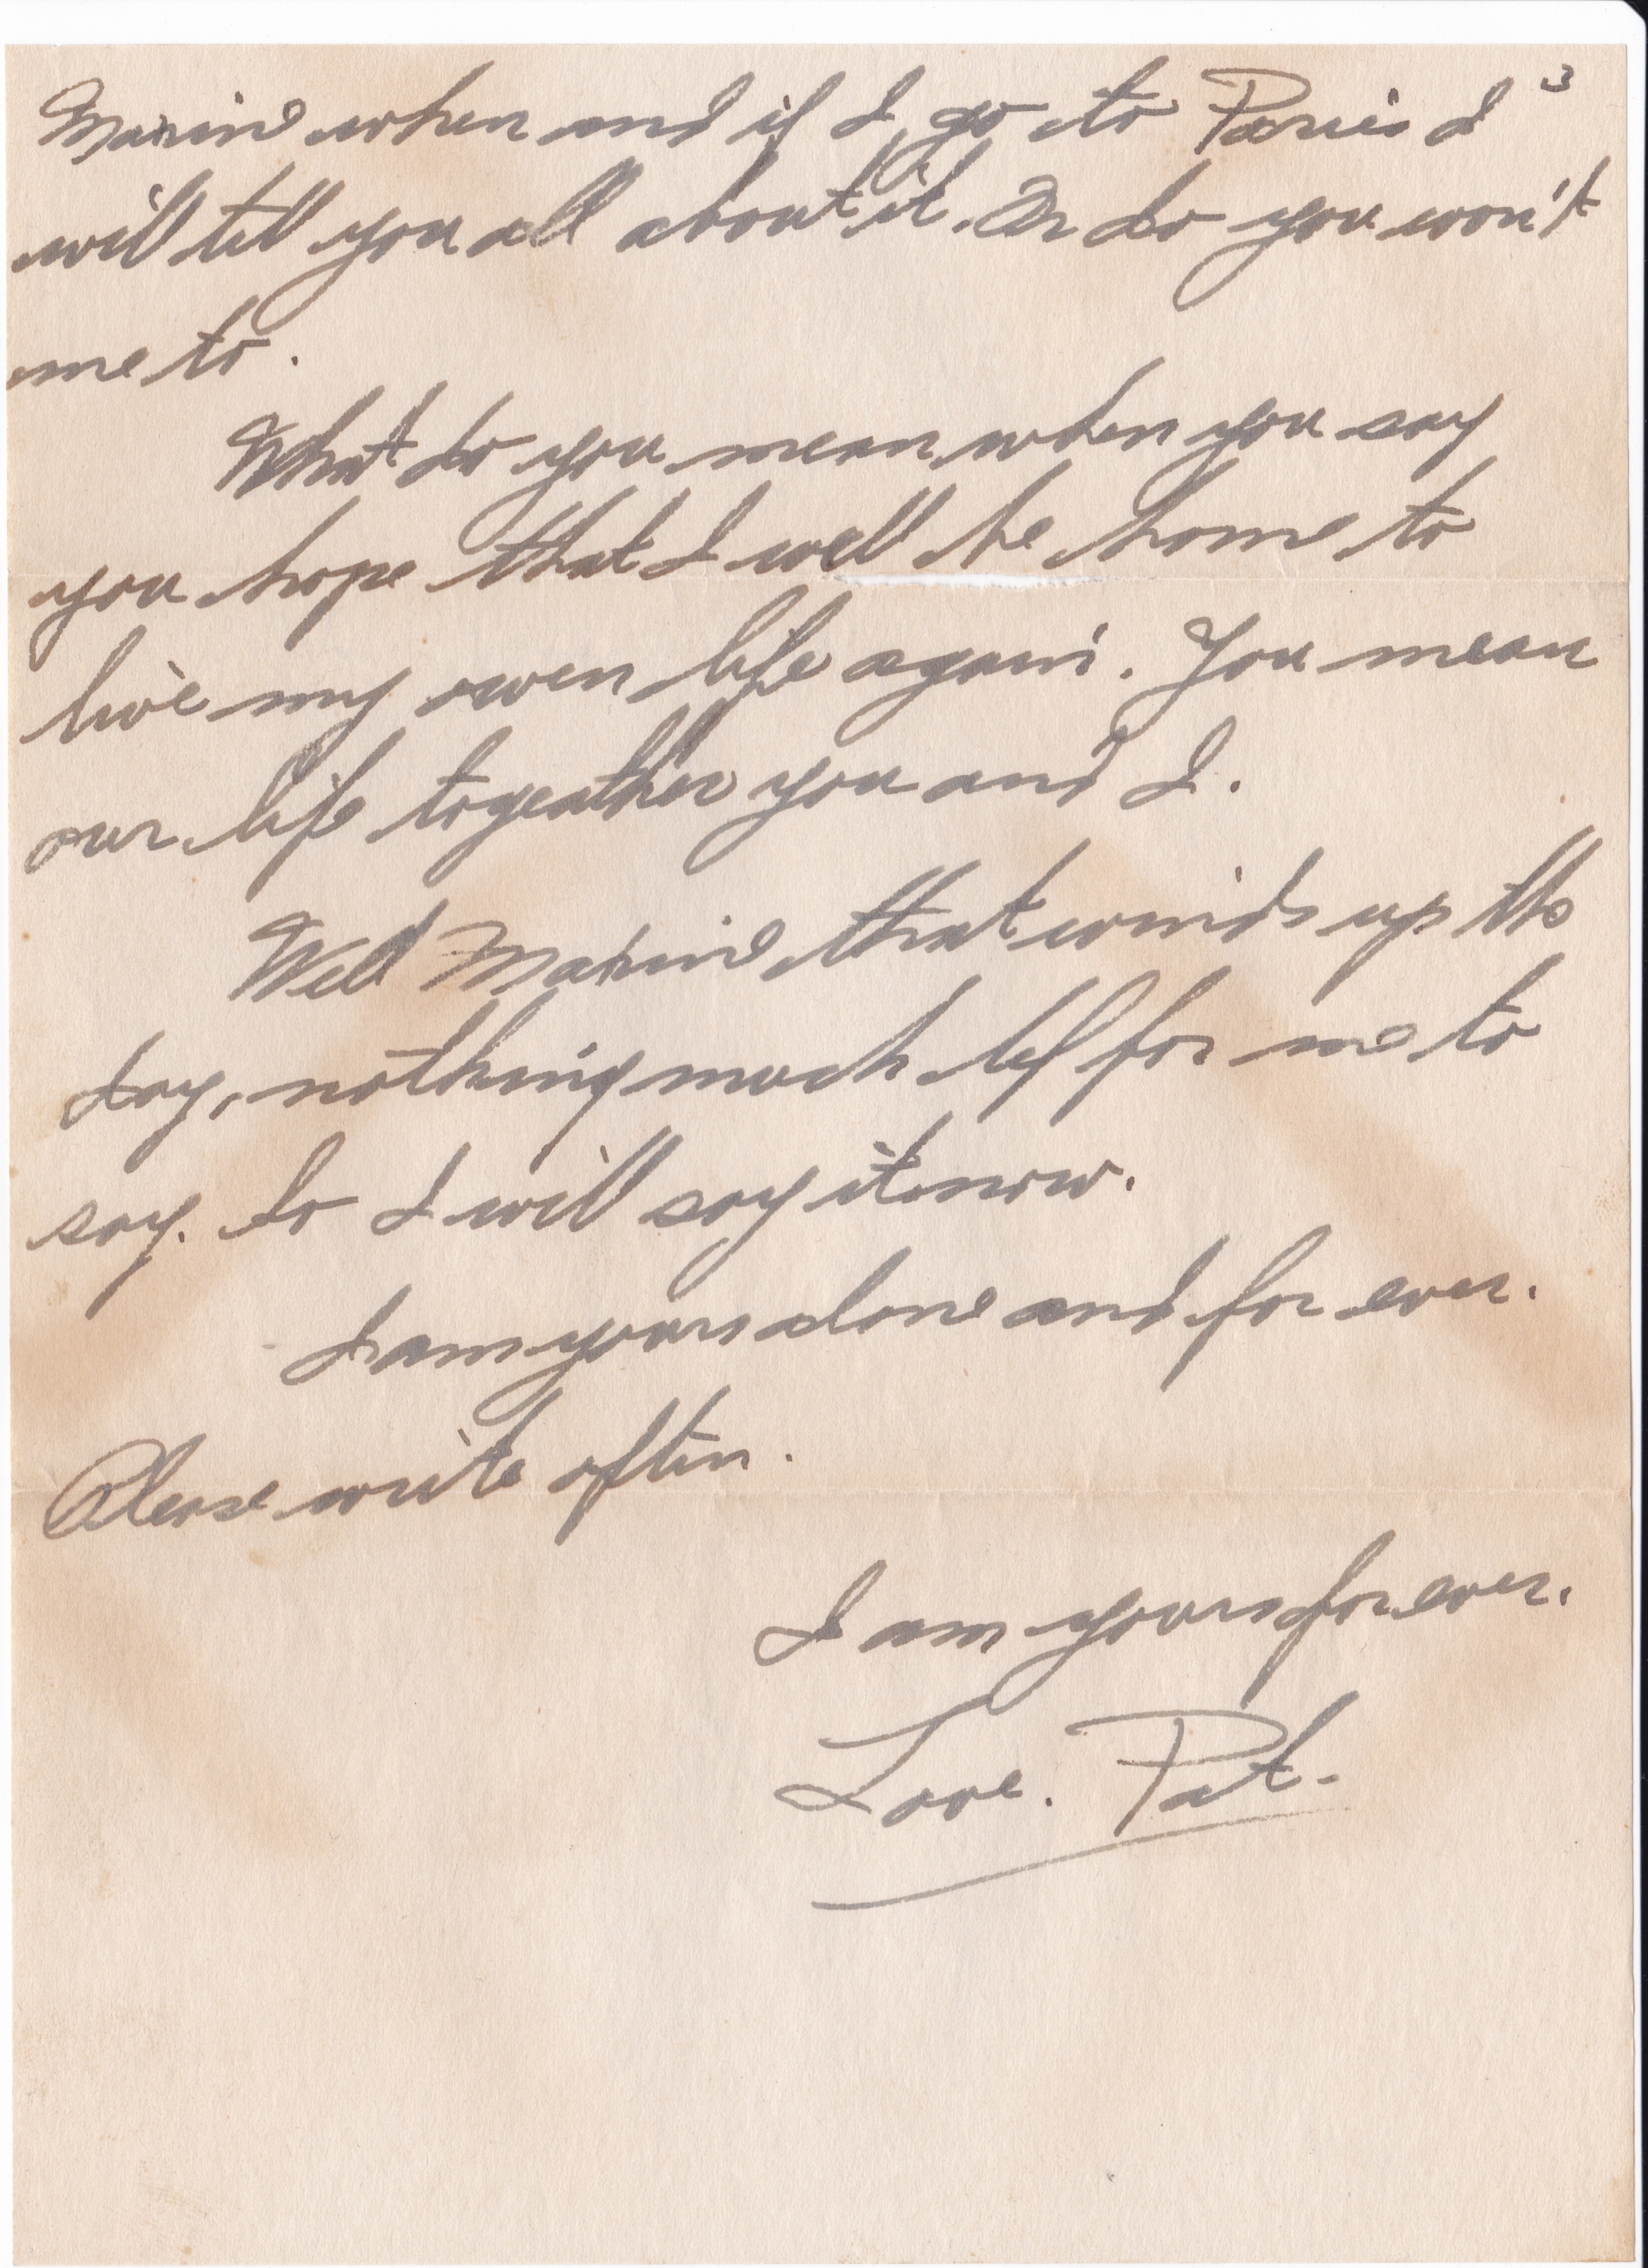 3
Maxine when and if I go to Paris I
will tell you all about it. Or do you won't
me to.
What do you mean when you say
you hope that I well be home to
live my owen life again. You mean
our life togeather you and I.
Well Maxine that winds up the
day, nothing much lef for me to
say. So I will say it now.
I am yours alone and for ever.
Please write often.
I am yours for ever.
Love. Pat.